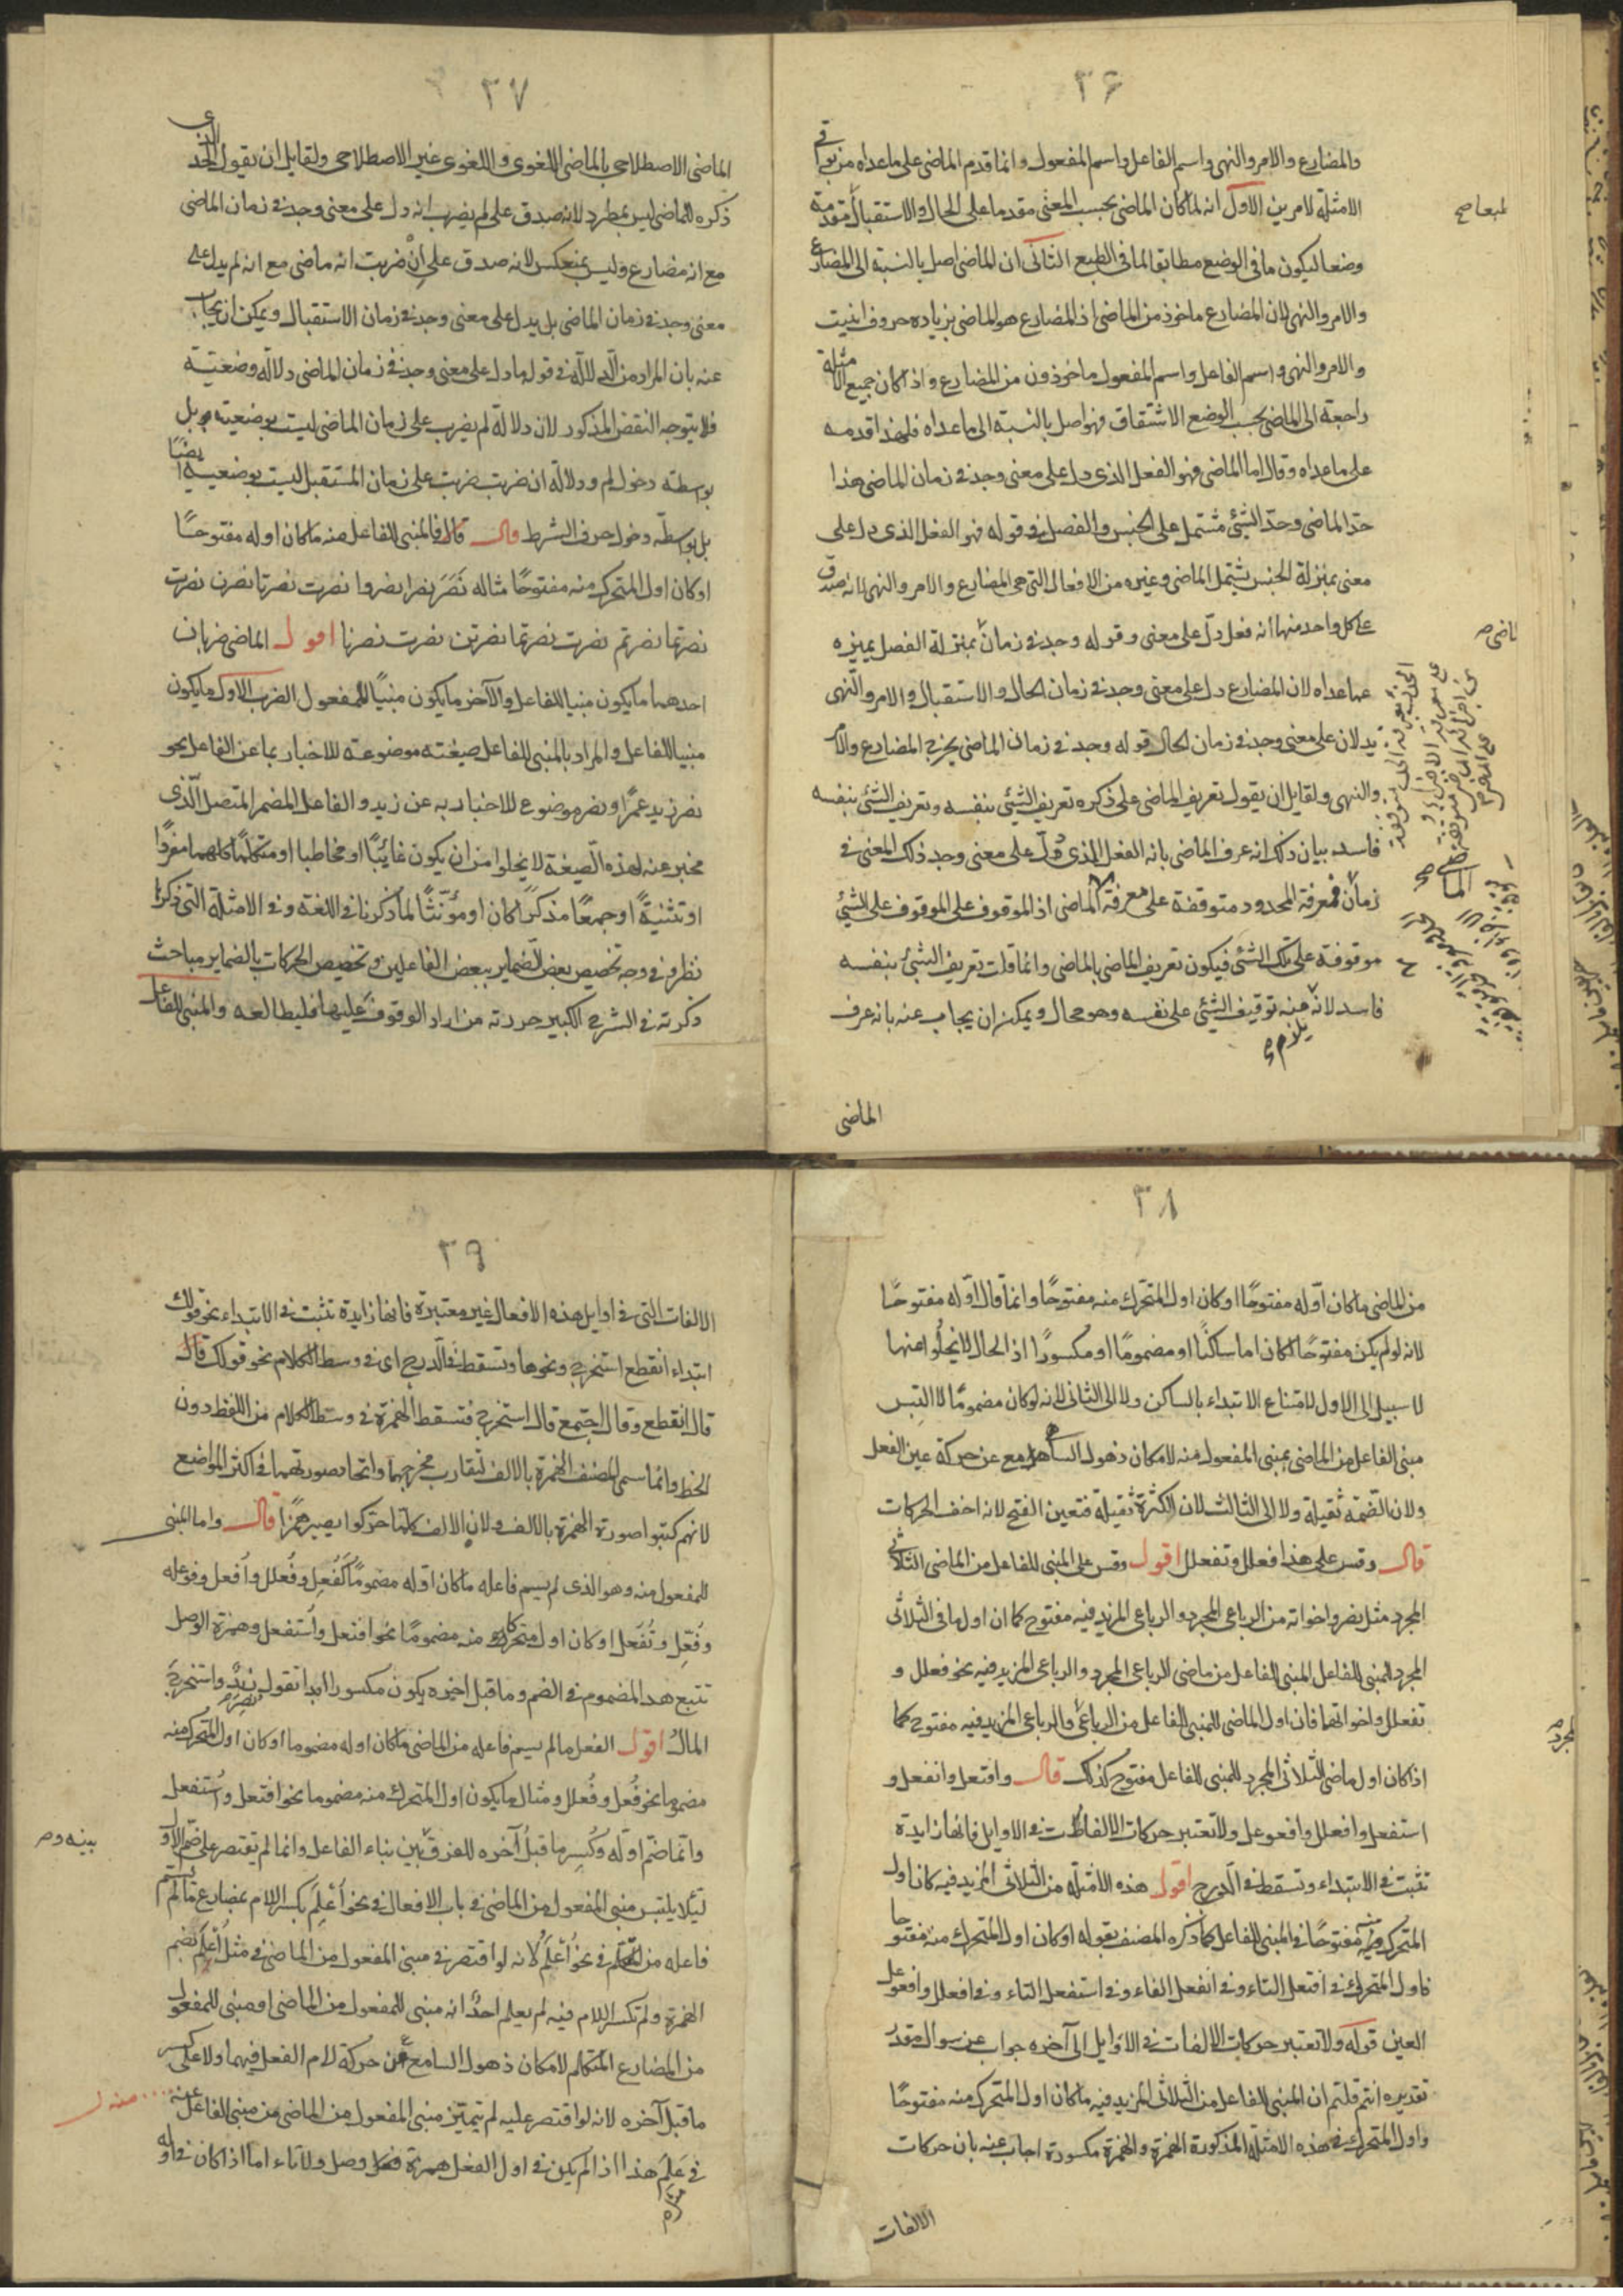 ٣٦
والمضارع والامر والنهى واسم الفاعل واسم المفعول وانما قدم الماضى على ما عداه من بواقى
الامثلة لامرين الاول انه لما كان الماضى بحسب المعنى مقدما على الحال والاستقبال قدمه
وضعا ليكون ما فى الوضع مطابقا لما فى الطبع الثانى ان الماضى اصل بالنسبة الى المضارع
والامر والنهى لان المضارع ماخوذ من الماضى اذ المضارع هو الماضى بزيادة حروف انيت
والامر والنهى واسم الفاعل واسم المفعول ماخوذون من المضارع واذا كان جميع الامثلة
راجعة الى الماضى بحسب الوضع الاشتقاق فهو اصل بالنسبة الى ما عداه فلهذا قدمه
على ما عداه وقال اما الماضى فهو الفعل الذى دل على معنى وجد فى زمان الماضى هذا
حد الماضى وحد الشئ مشتمل على الجنس والفصل فى قوله فهو الفعل الذى دل على
معنى بمنزلة الجنس يشتمل الماضى وغيره من الافعال التى هى المضارع والامر والنهى لانه صدق
على كل واحد منها انه فعل دل على معنى وقوله وجد فى زمان بمنزلة الفصل يميزه
عما عداه لان المضارع دل على معنى وجد فى زمان الحال والاستقبال والامر والنهى
يدلان على معنى وجد فى زمان الحال قوله وجد فى زمان الماضى يخرج المضارع والامر
والنهى ولقايل ان يقول تعريف الماضى على ذكره تعريف الشئ بنفسه وتعريف الشئ بنفسه
فاسد بيان ذلك انه عرف الماضى بانه الفعل الذى دل على معنى وجد ذلك المعنى فى
زمان فمعرفة المحدود متوقفة على معرفة الماضى اذ الموقوف على الموقوف على الشئ
موقوفة على تلك الشئ فيكون تعريف الماضى بالماضى وانما قلت تعريف الشئ بنفسه
فاسد لانه منه توقيف الشئ على نفسه وهو محال ويمكن ان يجاب عنه بانه عرف
يلزم
الماضى
٣٧
الماضى الاصطلاحى بالماضى اللغوى واللغوى غير الاصطلاحى ولقايل ان يقول الحد الذى
ذكره للماضى ليس بمطرد لانه صدق على لم يضرب انه دل على معنى وجد فى زمان الماضى
مع انه مضارع وليس بمنعكس لانه صدق على ان ضربت انه ماضى مع انه لم يدل على
معنى وجد فى زمان الماضى بل يدل على معنى وجد فى زمان الاستقبال ويمكن ان يجاب
عنه بان المراد من الدلالة فى قوله ما دل على معنى وجد فى زمان الماضى دلالة وضعيتة
فلا يتوجه النقض المذكور لان دلالة لم يضرب على زمان الماضى ليست بوضعيته بل
بوسطة دخول لم ودلالة ان ضربت ضربت على زمان المستقبل ليست بوضعيته ايضا
بل بوسطة دخول حرف الشرط قال فالمبنى للفاعل منه ما كان اوله مفتوحًا
او كان اول المتحرك منه مفتوحًا مثاله نَصَرَ نصرا نصروا نصرت نصرتا نصرن نصرت
نصرتما نصرتم نصرت نصرتما نصرتن نصرت نصرنا اقول الماضى ضربان
احدهما ما يكون مبنيا للفاعل والآخر ما يكون مبنيًا للمفعول الضرب الاول ما يكون
مبنيا للفاعل والمراد بالمبنى للفاعل صيغته موضوعة للاخبار بما عن الفاعل نحو
نصر زيد عمرًا ونصر موضوع للاخبار به عن زيد والفاعل المضمر المتصل الذى
مخبر عنه لهذه الصيغة لا يخلوا من ان يكون غايبًا او مخاطبا او متكلمًا كلهما مفردًا
او تثنيةً او جمعًا مذكرًا كان او مؤنثًا لما ذكرنا فى اللغة وفى الامثلة التى ذكرنا
نظر وفى وجه تخصيص بعض الضماير ببعض الفاعلين وتخصيص الحركات بالضماير مباحث
ذكرته فى الشرح الكبير حررته من اراد الوقوف عليها فليطالعه والمبنى للفاعل
٣٨
من الماضى ما كان اوله مفتوحًا او كان اول المتحرك منه مفتوحًا وانما قال اوله مفتوحًا
لانه لو لم يكن مفتوحًا لكان اما ساكنًا او مضمومًا او مكسورًا اذ الحال لا يخلوا منها
لا سبيل الى الاول لامتناع الابتداء بالساكن ولا الى الثانى لانه لو كان مضمومًا لالتبس
مبنى الفاعل من الماضى بمبنى المفعول منه لامكان ذهول السامع عن حركة عين الفعل
ولان الضمة ثقيلة ولا الى الثالث لان الكثرة ثقيلة فتعين الفتح لانه اخف الحركات
قال وقس على هذا فعلل وتفعلل اقول وقس على المبنى للفاعل من الماضى الثلاثى
المجرد مثل نصر واخواته من الرباعى المجرد والرباعى المزيد فيه مفتوح كما ان اول ما فى الثلاثى
المجرد المبنى للفاعل المبنى للفاعل من ماضى الرباعى المجرد والرباعى المزيد فيه نحو فعلل و
تفعلل واخواتهما فان اول الماضى المبنى للفاعل من الرباعى والرباعى المزيد فيه مفتوح كما
اذا كان اول ماضى الثلاثى المجرد المبنى للفاعل مفتوح كذلك قال وافتعل وانفعل و
استفعل وافعلل وافعوعل ولا تعتبر حركات الالفات فى الاوايل فانها زايدة
تثبت فى الابتداء وتسقط فى الدرج اقول هذه الامثلة من الثلاثى المزيد فيه كان اول
المتحرك منه مفتوحًا فى المبنى للفاعل كما ذكره المصنف بقوله او كان اول المتحرك منه مفتوحا
فاول المتحرك فى افتعل التاء وفى انفعل الفاء وفى استفعل التاء وفى افعلل وافعوعل
العين قوله ولا تعتبر حركات الالفات فى الاوايل الى آخره جواب عن سوال مقدر
تقديره انتم قلتم ان المبنى للفاعل من الثلاثى المزيد فيه ما كان اول المتحرك منه مفتوحًا
واول المتحرك فى هذه الامثلة المذكورة الهمزة والهمزة مكسورة اجاب عنه بان حركات
الالفات
٣٩
الالفات التى فى اوايل هذه الافعال غير معتبرة فانها زايدة تثبت فى الابتداء نحو قولك
ابتداء انقطع استخرج ونحوها وتسقط فى الدرج اى فى وسط الكلام نحو قولك قال
قال انقطع وقال اجتمع قال استخرج فتسقط الهمزة فى وسط الكلام من اللفظ دون
الخط وانما سمى المصنف الهمزة بالالف لتقارب مخرجهما واتحاد صورتهما فى اكثر المواضع
لانهم كتبوا صورة الهمزة بالالف ولان الالف كلما حركوا يصير همزًا قال واما المبنى
للمفعول منه وهو الذى لم يسم فاعله ما كان اوله مضمومًا كفُعِل وفُعلل واُفعل وفوعل
وفُعّل وتُفعّل او كان اول متحرك منه مضمومًا نحو افتعل واُستفعل وهمزة الوصل
تتبع هذا المضموم فى الضم وما قبل اخيره يكون مكسورا ابدا تقول نُصِرَ زيدٌ واستخرج
المالُ اقول الفعل ما لم يسم فاعله من الماضى ما كان اوله مضموما او كان اول المتحرك منه
مضموما نحو فُعل وفُعلل ومثال ما يكون اول المتحرك منه مضموما نحو افتعل واُستفعل
وانما ضم اوله وكُسِر ما قبلُ آخره للفرق بين بناء الفاعل وانما لم يقتصر على ضم الاول
لئلا يلتبس مبنى المفعول من الماضى فى باب الافعال فى نحو اُعْلِمَ بكسر اللام بمضارع ما لم يسم
فاعله من المتكلم فى نحو اُعْلَمُ لانه لو اقتصر فى مبنى المفعول من الماضى فى مثل اُعْلَم بضم
الهمزة ولم تكسر اللام فيه لم يعلم احدٌ انه مبنى للمفعول من الماضى او مبنى للمفعول
من المضارع المتكلم لامكان ذهول السامع عن حركة لام الفعل فيهما ولا على كسر
ما قبل آخره لانه لو اقتصر عليه لم يتميّز مبنى المفعول من الماضى من مبنى الفاعل عنه
فى عَلِمَ هذا اذا لم يكن فى اول الفعل همزة وصل ولا تاء اما اذا كان فى اوله